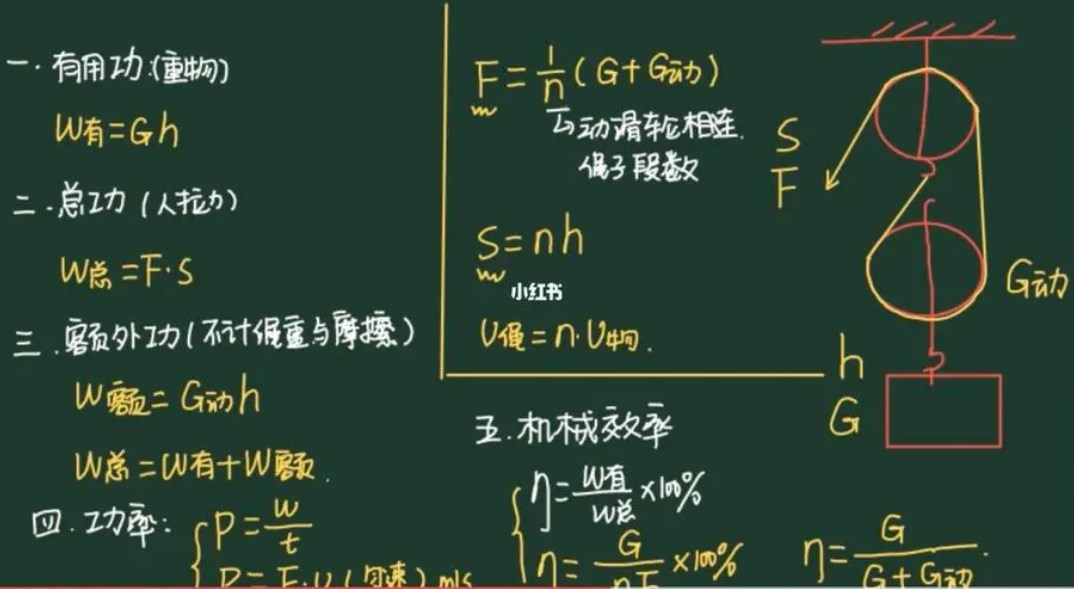 一.有用功:(重物)
W有=Gh
二.总功(人拉力)
W总=F·S
三.额外功(不计绳重与摩擦)
W额=G动h
W总=W有+W额.
四.功率:
P=W/t
P=F·v(匀速) m/s
F=1/n(G+G动)
与动滑轮相连.
绳子段数
S=nh
小红书
v绳=n·v物.
S
F
G动
h
G
五.机械效率
η=W有/W总×100%
η=G/nF×100%
η=G/G+G动.